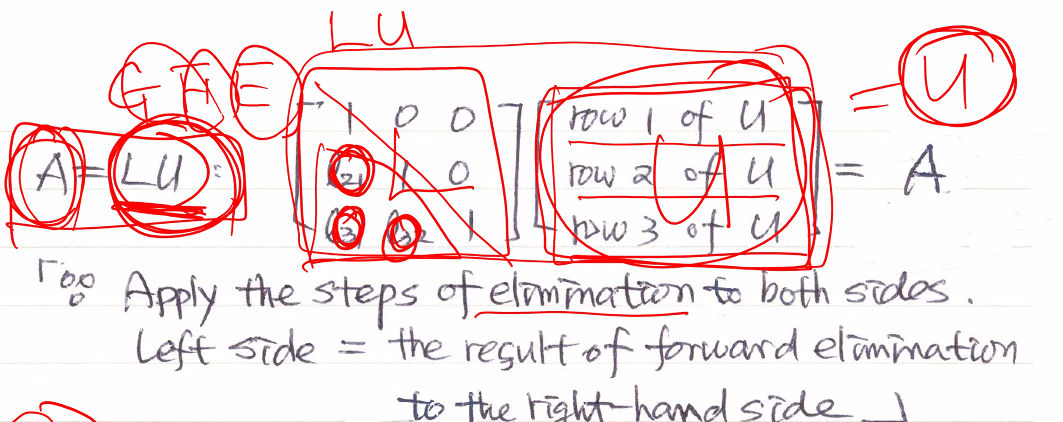 LU
GAE [ 1 0 0 ] [ row 1 of U ] = U
A = LU : [ l21 1 0 ] [ row 2 of U ] = A
[ l31 l32 1 ] [ row 3 of U ]
U
「∵ Apply the steps of elimination to both sides.
Left side = the result of forward elimination
to the right-hand side 」